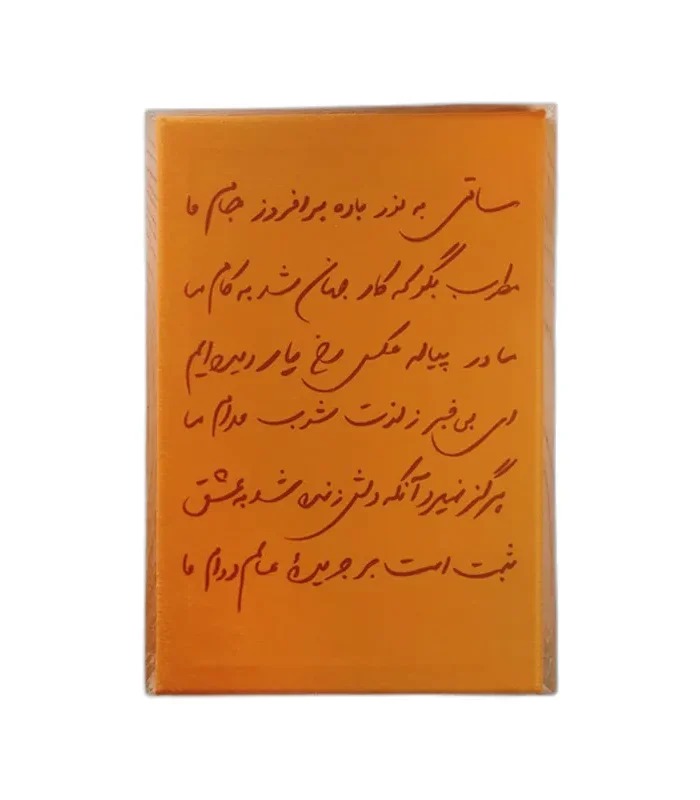 ساقی به نور باده برافروز جام ما
مطرب بگو که کار جهان شد به کام ما
ما در پیاله عکس رخ یار دیده‌ایم
ای بی‌خبر ز لذت شرب مدام ما
هرگز نمیرد آنکه دلش زنده شد به عشق
ثبت است بر جریدهٔ عالم دوام ما